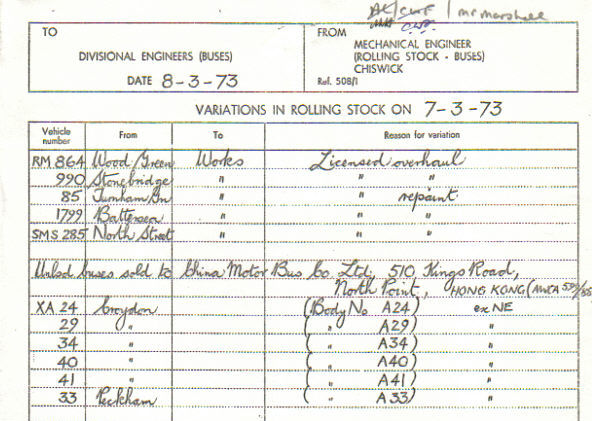 AC/CWF / Mr Marshall
TO
DIVISIONAL ENGINEERS (BUSES)
DATE 8-3-73
FROM
MECHANICAL ENGINEER
(ROLLING STOCK - BUSES)
CHISWICK
Ref. 508/1
VARIATIONS IN ROLLING STOCK ON 7-3-73
Vehicle number From To Reason for variation
RM 864 Wood Green Works Licensed overhaul
990 Stonebridge " " "
85 Turnham Gn " " repaint
1799 Battersea " " "
SMS 285 North Street " " "
Unlsd buses sold to China Motor Bus Co Ltd, 510 Kings Road,
North Point, HONG KONG (AWCA
XA 24 Croydon (Body No A24) ex NE
29 " ( " A29) "
34 " ( " A34) "
40 " ( " A40) "
41 " ( " A41) "
33 Peckham ( " A33) "